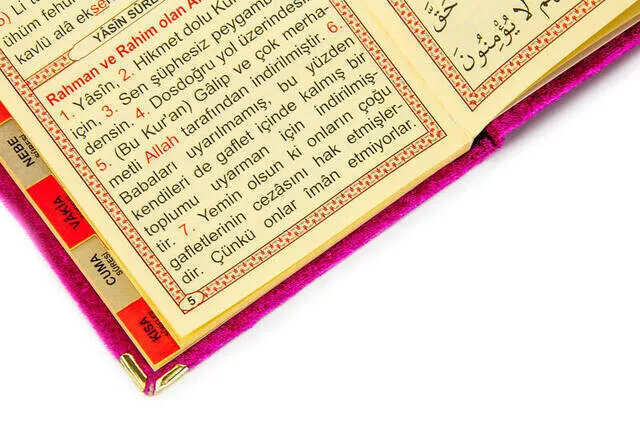 ühüm fehüm
kavlü alâ
YÂSÎN
Rahman ve Rahim olan
1. Yâsîn. 2. Hikmet dolu
için, 3. Sen şüphesiz
densin. 4. Dosdoğru yol üzerindesin.
5. (Bu Kur'an) Gâlip ve çok
metli Allah tarafından indirilmiştir. 6.
Babaları uyarılmamış, bu yüzden
kendileri de gaflet içinde kalmış bir
toplumu uyarman için indirilmiş-
tir. 7. Yemin olsun ki onların çoğu
gafletlerinin cezasını hak etmişler-
dir. Çünkü onlar îmân etmiyorlar.
5
حَقَّ
لَا يُؤْمِنُونَ
NEBE
SÛRESİ
VÂKIA
CUMA
SÛRESİ
KISA